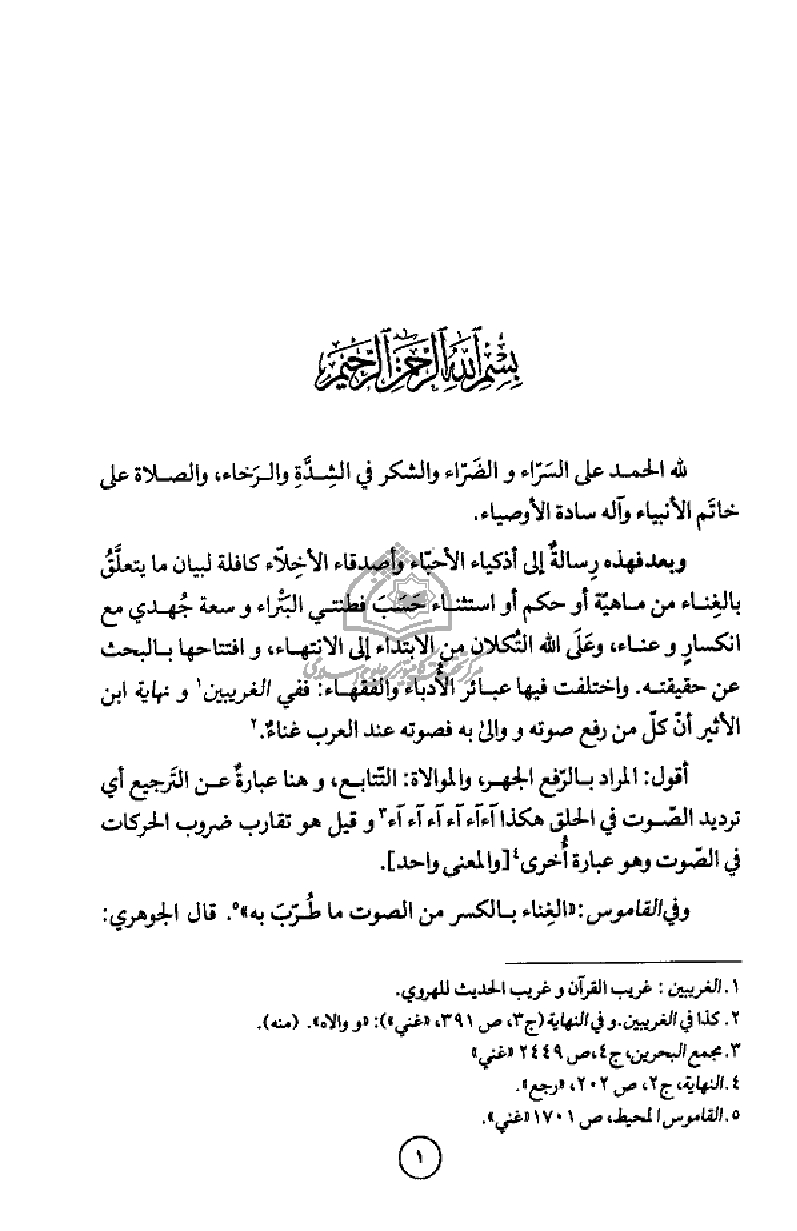 بِسْمِ اللَّهِ الرَّحْمَنِ الرَّحِيمِ
لله الحمد على السَرّاء و الضَرّاء والشكر في الشِدَّةِ والرَخاء، والصلاة على
خاتَم الأنبياء وآله سادة الأوصياء.
وبعد فهذه رِسالةٌ إلى أذكياء الأحبّاء وأصدقاء الأخِلاّء كافلة لبيان ما يتعلَّقُ
بالغِناء من ماهيّة أو حكم أو استثناء حَسَبَ فطنتي البَتْراء و سعة جُهدي مع
انكسارٍ و عناء، وعَلَى الله التُكلان من الابتداء إلى الانتهاء، و افتتاحها بالبحث
عن حقيقته. واختلفت فيها عبائر الأدباء والفقهاء: ففي الغريبين١ و نهاية ابن
الأثير أنّ كلّ من رفع صوته و والىٰ به فصوته عند العرب غناءٌ.٢
أقول: المراد بالرّفع الجهر، والموالاة: التّتابع، و هنا عبارةٌ عن التَرجيع أي
ترديد الصّوت في الحلق هكذا آءآء آء آء آء آء٣ و قيل هو تقارب ضروب الحركات
في الصّوت وهو عبارة أُخرى٤ [والمعنى واحد].
وفي القاموس: «الغِناء بالكسر من الصوت ما طُرّبَ به»٥. قال الجوهري:
١. الغريبين : غريب القرآن و غريب الحديث للهروي.
٢. كذا في الغريبين. و في النهاية (ج٣، ص ٣٩١، «غني»): «و والاه». (منه).
٣. مجمع البحرين، ج٤، ص ٢٤٤٩ «غني»
٤. النهاية، ج٢، ص ٢٠٢، «رجع».
٥. القاموس المحيط، ص ١٧٠١ «غني».
١